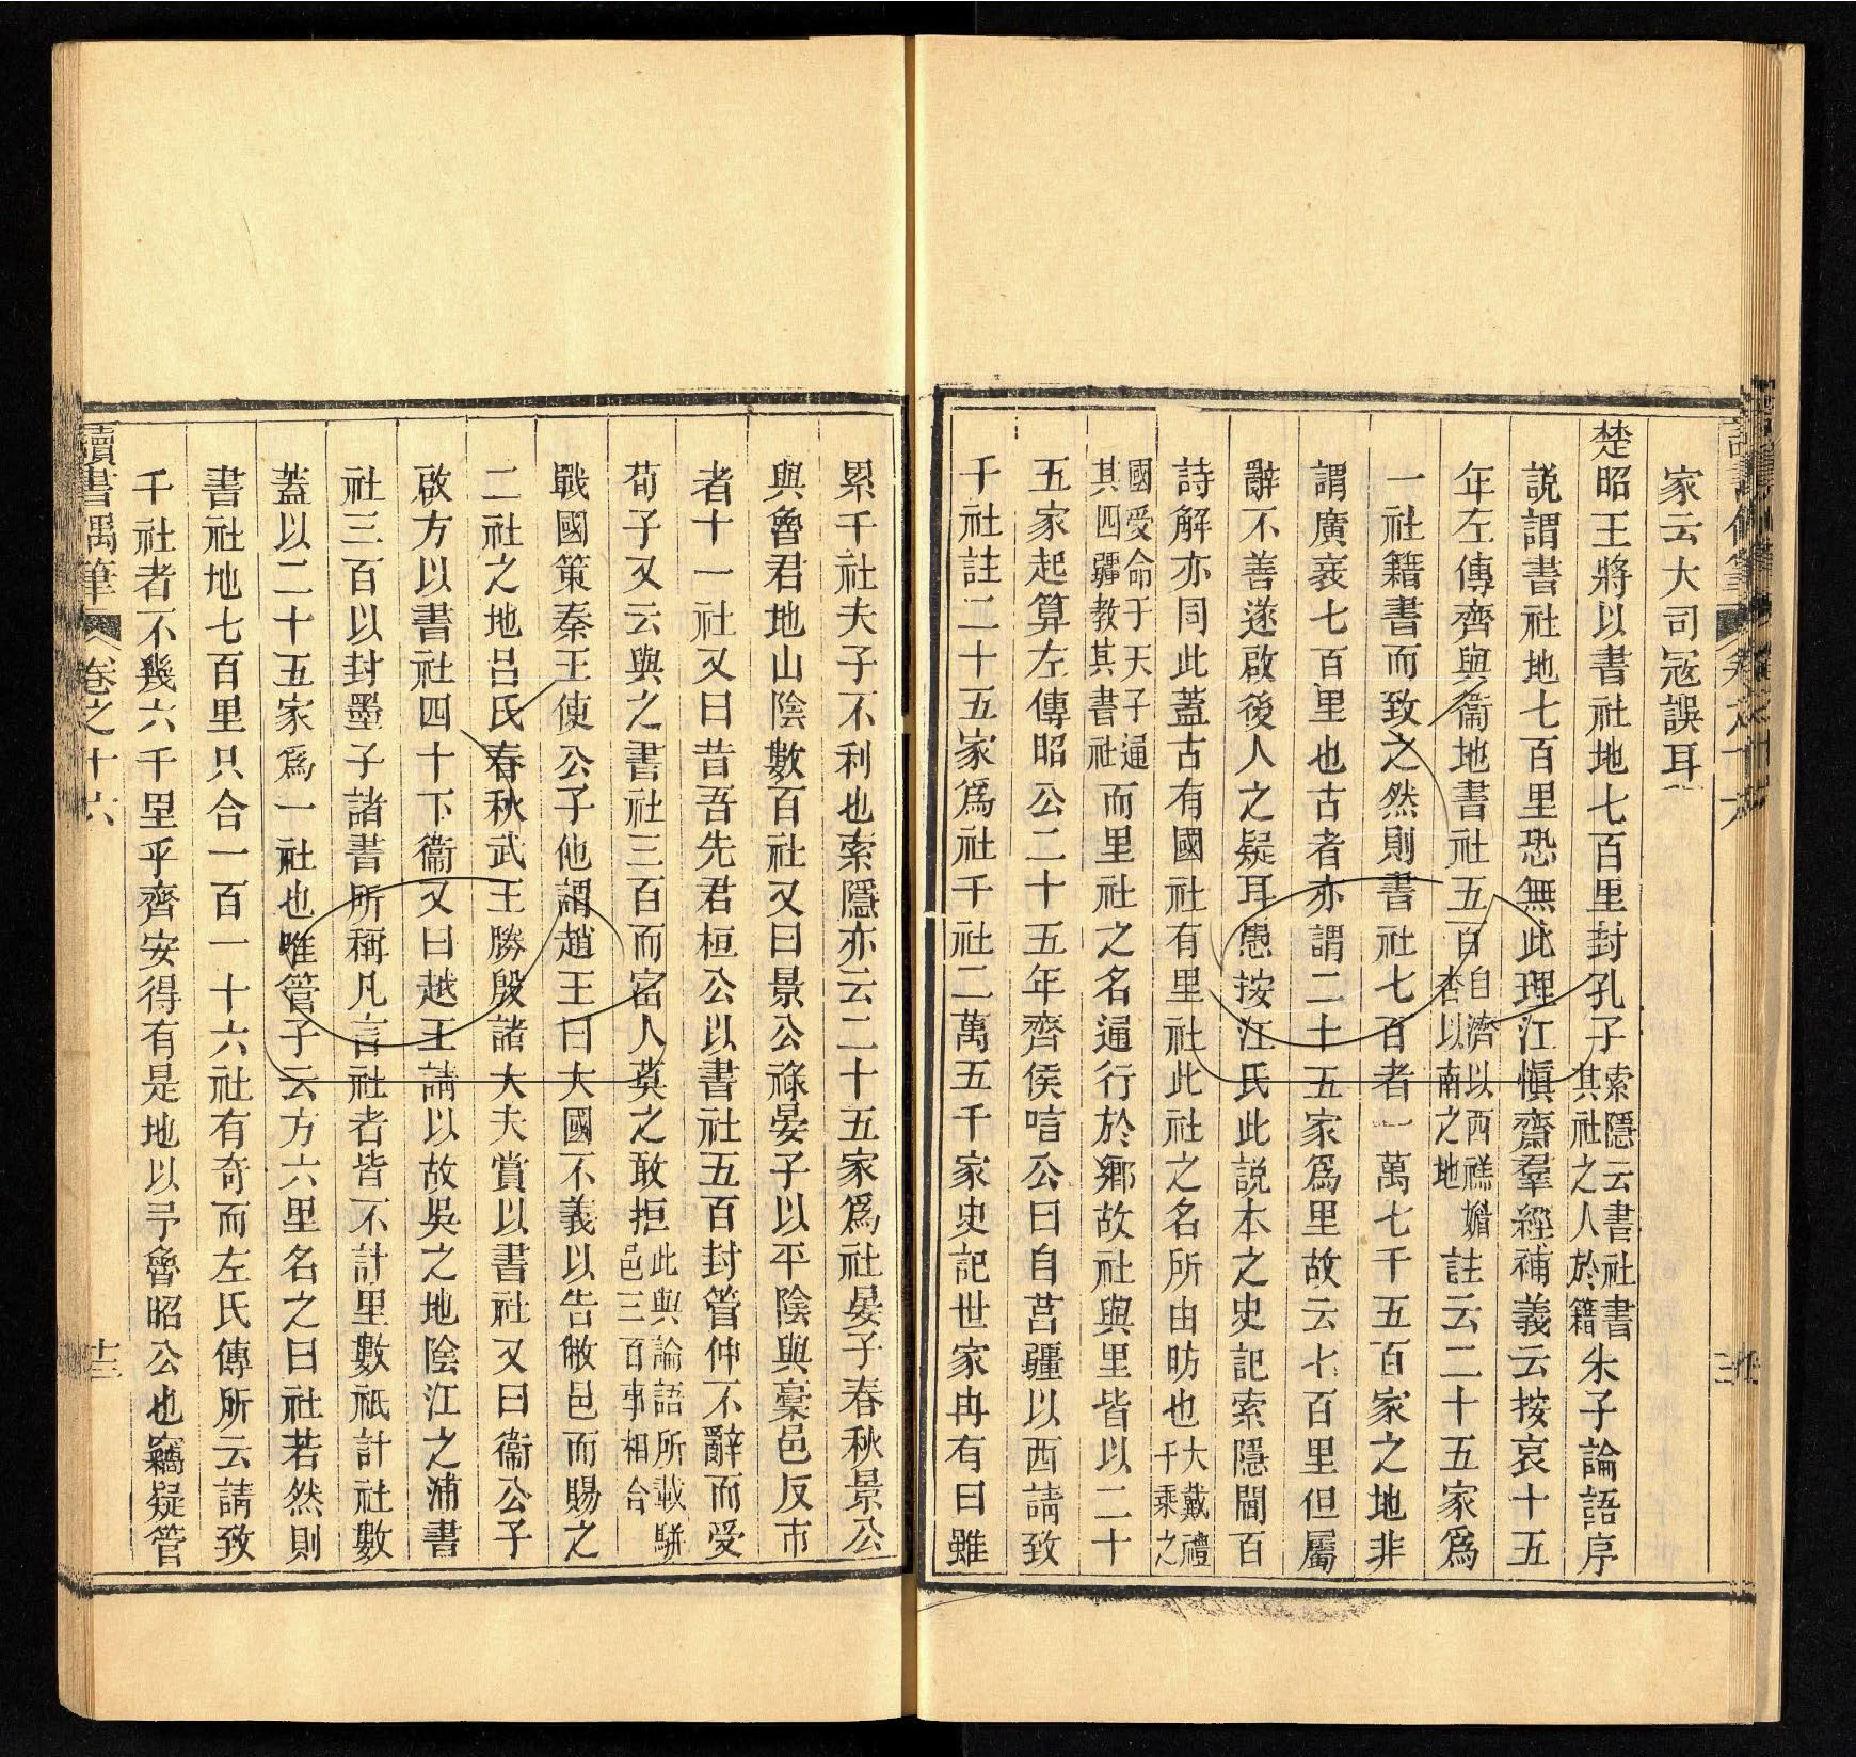 家云大司寇誤耳
楚昭王將以書社地七百里封孔子索隱云書社書其社之人於籍朱子論語序
說謂書社地七百里恐無此理江愼齋羣經補義云按哀十五
年左傳齊與衞地書社五百自濟以西禚媚杏以南之地註云二十五家爲
一社籍書而致之然則書社七百者一萬七千五百家之地非
謂廣袤七百里也古者亦謂二十五家爲里故云七百里但屬
辭不善遂啟後人之疑耳愚按江氏此說本之史記索隱閻百
詩解亦同此蓋古有國社有里社此社之名所由昉也大戴禮千乘之
國受命于天子通其四疆教其書社而里社之名通行於鄉故社與里皆以二十
五家起算左傳昭公二十五年齊侯唁公曰自莒疆以西請致
千社註二十五家爲社千社二萬五千家史記世家冉有曰雖
累千社夫子不利也索隱亦云二十五家爲社晏子春秋景公
與魯君地山陰數百社又曰景公祿晏子以平陰與稾邑反市
者十一社又曰昔吾先君桓公以書社五百封管仲不辭而受
荀子又云與之書社三百而富人莫之敢拒此與論語所載駢邑三百事相合
戰國策秦王使公子他謂趙王曰大國不義以告敝邑而賜之
二社之地呂氏春秋武王勝殷諸大夫賞以書社又曰衞公子
啟方以書社四十下衞又曰越王請以故吳之地陰江之浦書
社三百以封墨子諸書所稱凡言社者皆不計里數祇計社數
蓋以二十五家爲一社也唯管子云方六里名之曰社若然則
書社地七百里只合一百一十六社有奇而左氏傳所云請致
千社者不幾六千里乎齊安得有是地以予魯昭公也竊疑管
讀書偶筆 卷之十六 十三